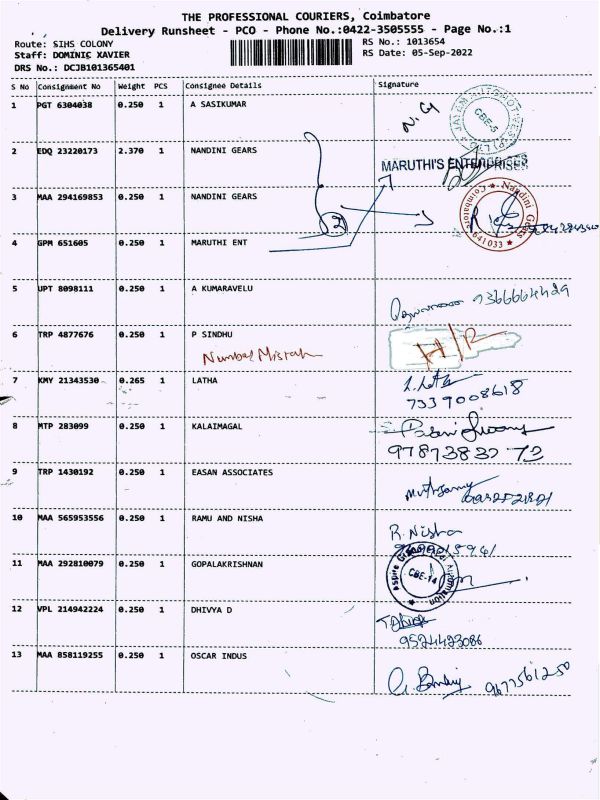 THE PROFESSIONAL COURIERS, Coimbatore
Delivery Runsheet - PCO - Phone No.:0422-3505555 - Page No.:1
Route: SIHS COLONY
Staff: DOMINIC XAVIER
DRS No.: DCJB101365401
RS No.: 1013654
RS Date: 05-Sep-2022
S No Consignment No Weight PCS Consignee Details Signature
1 PGT 6304038 0.250 1 A SASIKUMAR
CBE-5
2 EDQ 23220173 2.370 1 NANDINI GEARS
MARUTHI'S ENTERPRISES
3 MAA 294169853 0.250 1 NANDINI GEARS
Nandini Gears Coimbatore 641033
4 GPM 651605 0.250 1 MARUTHI ENT
5 UPT 8098111 0.250 1 A KUMARAVELU
9366664429
6 TRP 4877676 0.250 1 P SINDHU
Number Mistak
H/R
7 KMY 21343530 0.265 1 LATHA
7339008618
8 MTP 283099 0.250 1 KALAIMAGAL
9787383272
9 TRP 1430192 0.250 1 EASAN ASSOCIATES
10 MAA 565953556 0.250 1 RAMU AND NISHA
R. Nisha
11 MAA 292810079 0.250 1 GOPALAKRISHNAN
CBE-14
12 VPL 214942224 0.250 1 DHIVYA D
9524423086
13 MAA 858119255 0.250 1 OSCAR INDUS
9677561250